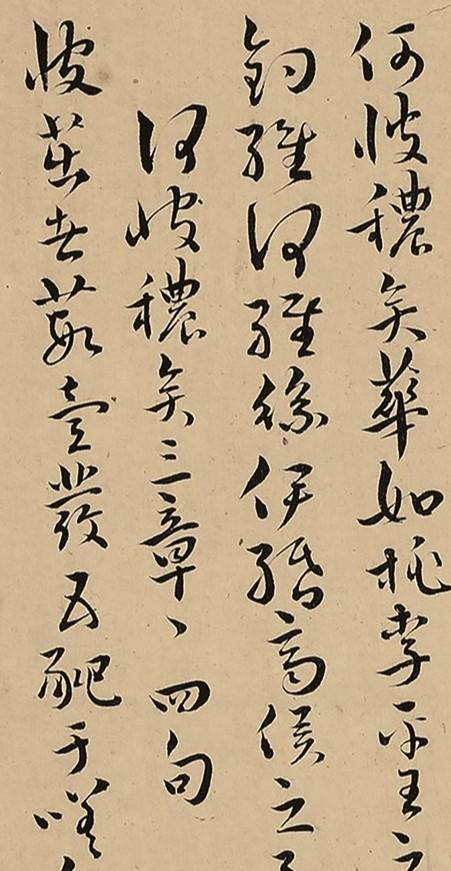 何彼穠矣華如桃李平王之
釣維何維絲伊緡齊侯之
何彼穠矣三章、四句
彼茁者葭壹發五豝于嗟